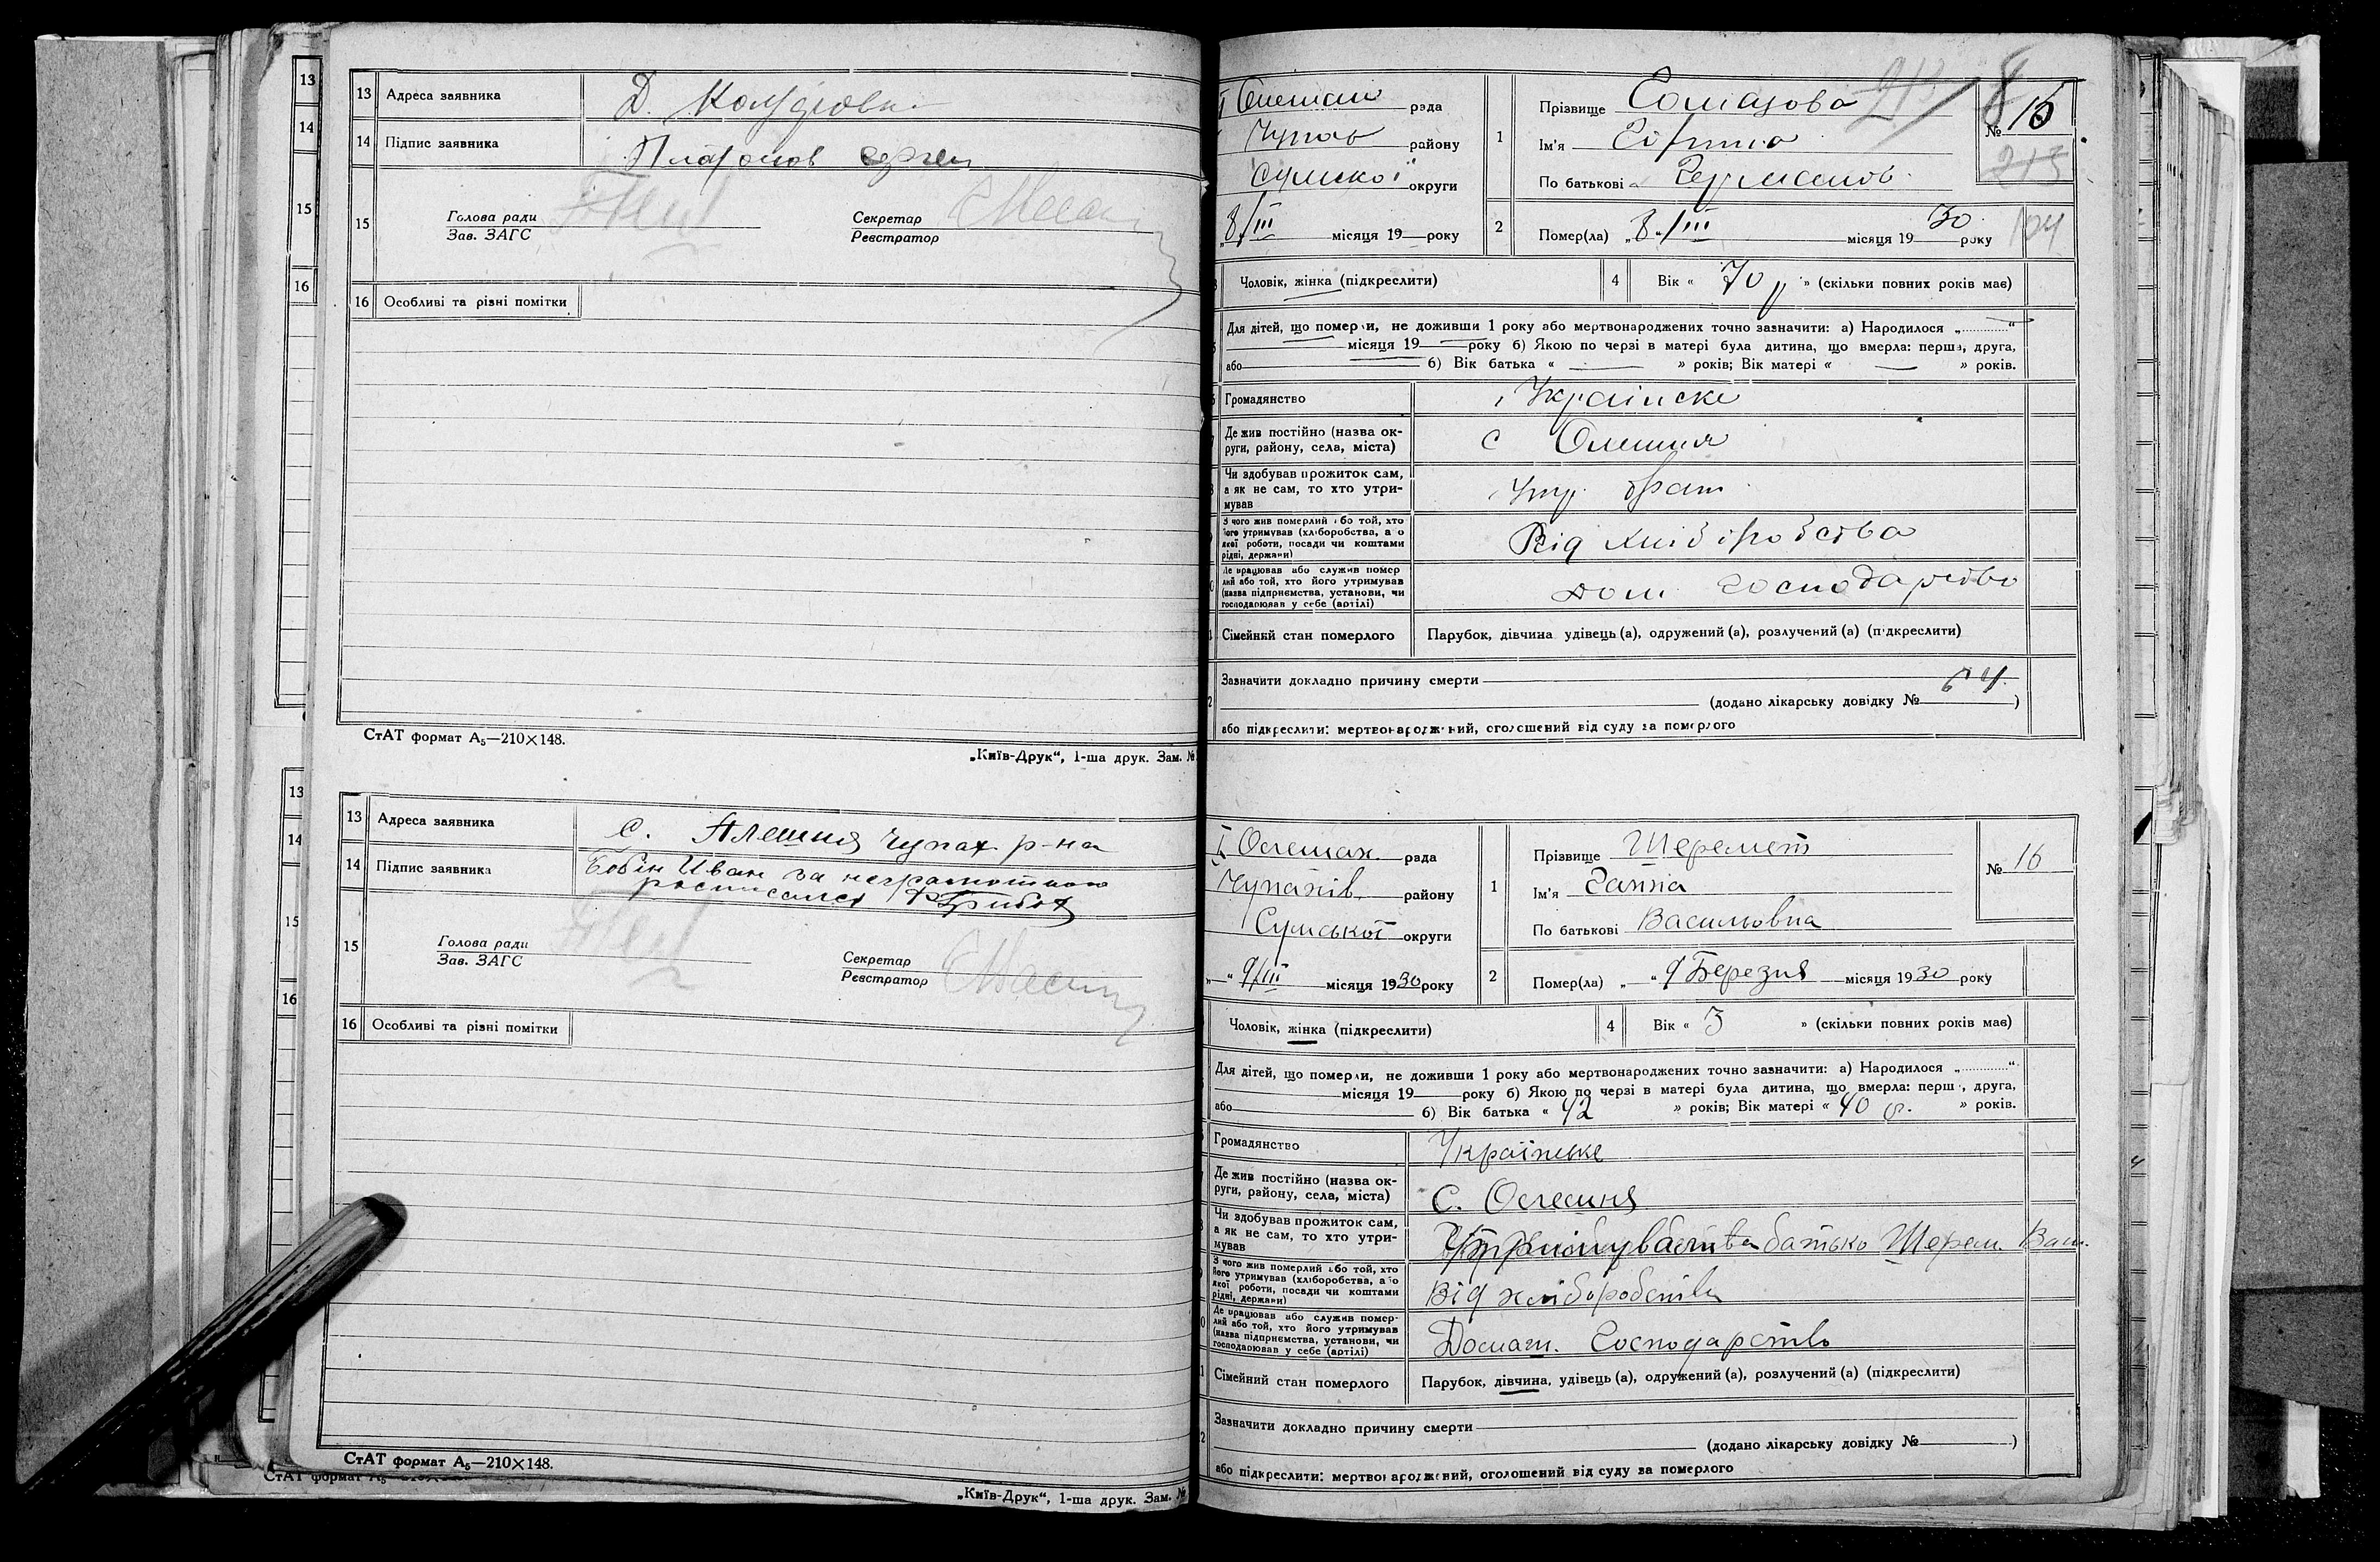 13 Адреса заявника Д.
14 Підпис заявника Платонов
15 Голова ради
Зав. ЗАГС
Секретар
Реєстратор
16 Особливі та різні помітки
СтАТ формат А₅—210×148.
„Київ-Друк“, 1-ша друк. Зам. №
13 Адреса заявника с. Алешня Чупах р-на
14 Підпис заявника Бобін Иван за неграмотного
росписался
15 Голова ради
Зав. ЗАГС
Секретар
Реєстратор
16 Особливі та різні помітки
СтАТ формат А₅—210×148.
„Київ-Друк“, 1-ша друк. Зам. №
рада
району
Сумської округи
„8/III місяця 19 року
1 Прізвище
Ім'я
По батькові
№ 15
213
2 Помер(ла) „8“/III місяця 1930 року
Чоловік, жінка (підкреслити)
4 Вік « 70 р » (скільки повних років має)
Для дітей, що померли, не доживши 1 року або мертвонароджених точно зазначити: а) Народилося „ “
місяця 19 року б) Якою по черзі в матері була дитина, що вмерла: перша, друга,
або б) Вік батька « » років; Вік матері « » років.
Громадянство Українске
Де жив постійно (назва ок-
руги, району, села, міста) с Олешня
Чи здобував прожиток сам,
а як не сам, то хто утри-
мував Утр. брат
З чого жив померлий або той, хто
його утримував (хліборобства, або
якої роботи, посади чи коштами
рідні, держави) Від хліборобства
Де працював або служив помер
лий або той, хто його утримував
(назва підприємства, установи, чи
господарював у себе (артілі) Дом. господарство
Сімейний стан померлого Парубок, дівчина удівець (а), одружений (а), розлучений (а) (підкреслити)
Зазначити докладно причину смерти
(додано лікарську довідку № 64)
або підкреслити: мертвонароджений, оголошений від суду за померлого
Олешан. рада
Чупахів. району
Сумської округи
„ “ 9/III місяця 1930 року
1 Прізвище Шеремет
Ім'я Ганна
По батькові Васильовна
№ 16
2 Помер(ла) „ “ 9 Березня місяця 1930 року
Чоловік, жінка (підкреслити)
4 Вік « 3 » (скільки повних років має)
Для дітей, що померли, не доживши 1 року або мертвонароджених точно зазначити: а) Народилося „ “
місяця 19 року б) Якою по черзі в матері була дитина, що вмерла: перша, друга,
або б) Вік батька « 42 » років; Вік матері « 40 р. » років.
Громадянство Українське
Де жив постійно (назва ок-
руги, району, села, міста) С. Олешня
Чи здобував прожиток сам,
а як не сам, то хто утри-
мував батько Шерем. Вас.
З чого жив померлий або той, хто
його утримував (хліборобства, або
якої роботи, посади чи коштами
рідні, держави) Від хліборобства
Де працював або служив помер-
лий або той, хто його утримував
(назва підприємства, установи, чи
господарював у себе (артілі) Домаш. Господарство
Сімейний стан померлого Парубок, дівчина, удівець (а), одружений (а), розлучений (а) (підкреслити)
Зазначити докладно причину смерти
(додано лікарську довідку № )
або підкреслити: мертвонароджений, оголошений від суду за померлого